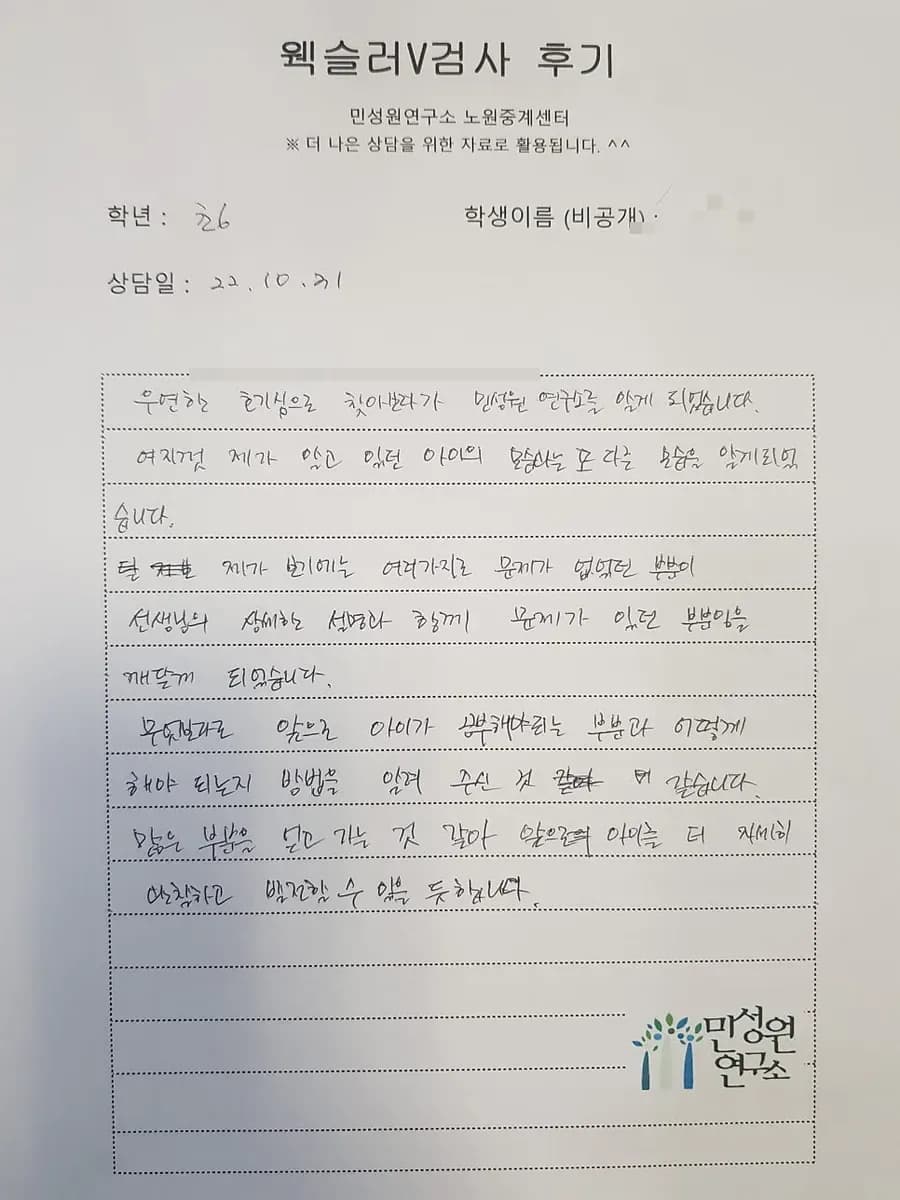 웩슬러V검사 후기
민성원연구소 노원중계센터
※ 더 나은 상담을 위한 자료로 활용됩니다. ^^
학년 : 초6
학생이름 (비공개) :
상담일 : 22.10.31
우연한 호기심으로 찾아보다가 민성원 연구소를 알게 되었습니다.
여지껏 제가 알고 있던 아이의 모습과는 또 다른 모습을 알게되었
습니다.
제가 보기에는 여러가지로 문제가 없었던 부분이
선생님의 상세한 설명과 함께 문제가 있던 부분임을
깨닫게 되었습니다.
무엇보다도 앞으로 아이가 공부해야되는 부분과 어떻게
해야 되는지 방법을 알려 주신 것 같습니다.
많은 부분을 얻고 가는 것 같아 앞으로 아이를 더 자세히
관찰하고 발전할 수 있을 듯합니다.
민성원
연구소